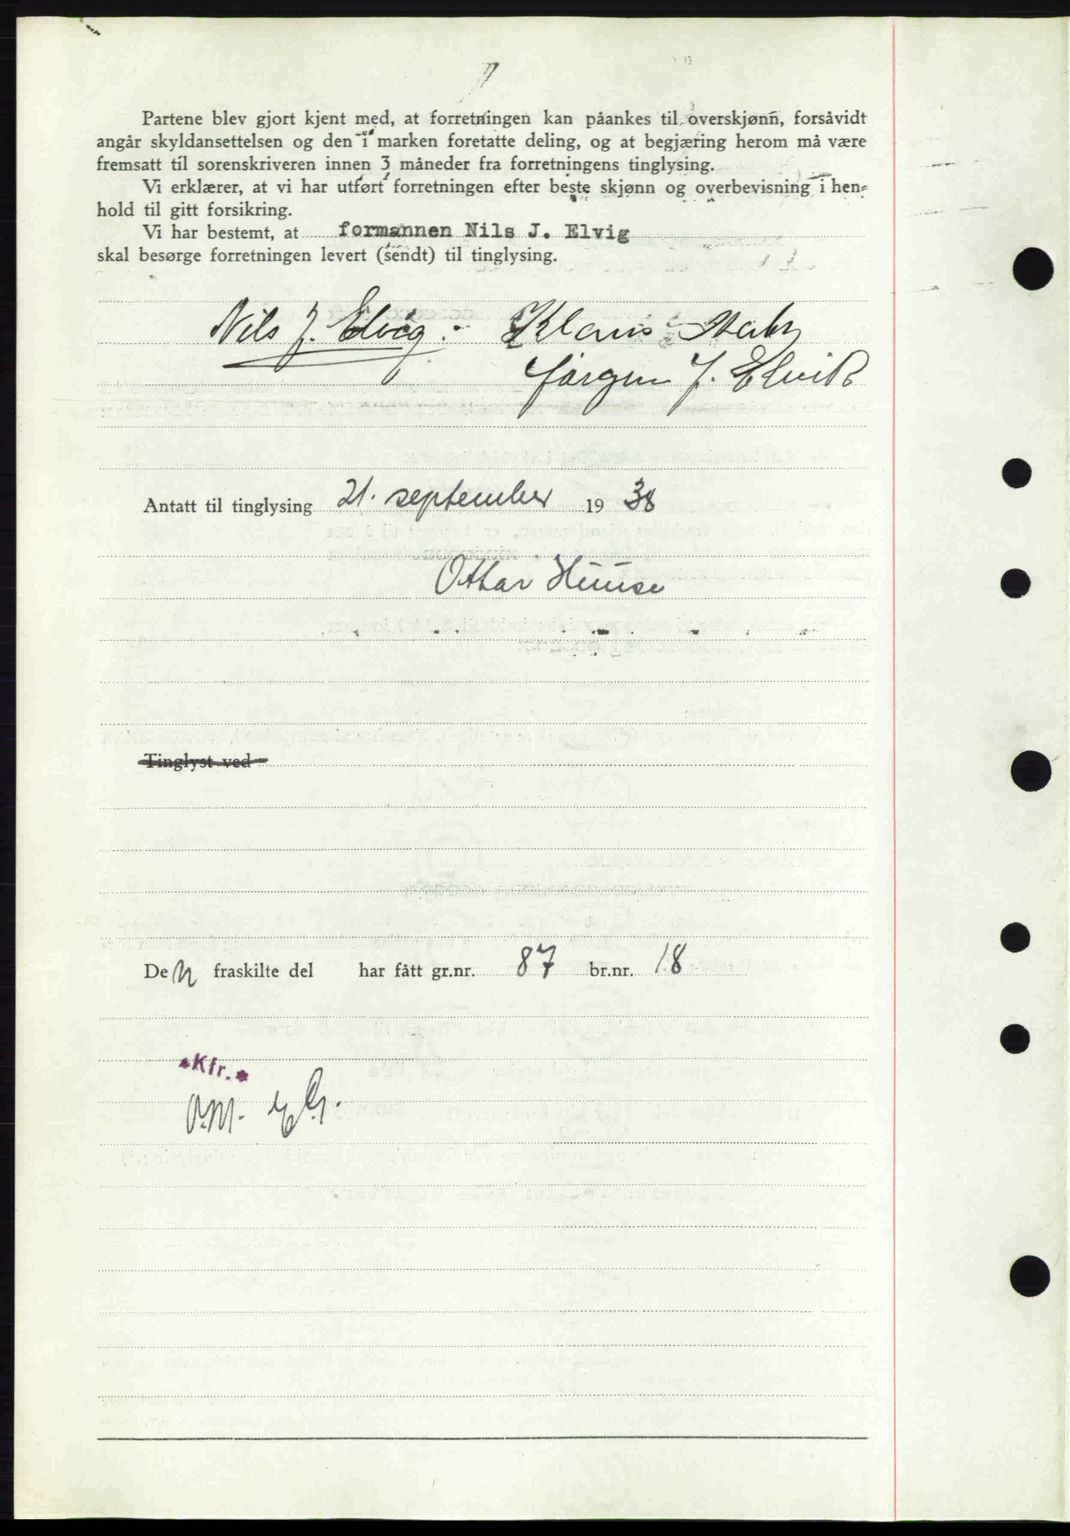 Partene blev gjort kjent med, at forretningen kan påankes til overskjønn, forsåvidt
angår skyldansettelsen og den i marken foretatte deling, og at begjæring herom må være
fremsatt til sorenskriveren innen 3 måneder fra forretningens tinglysing.
Vi erklærer, at vi har utført forretningen efter beste skjønn og overbevisning i hen-
hold til gitt forsikring.
Vi har bestemt, at formannen Nils J. Elvig
skal besørge forretningen levert (sendt) til tinglysing.
Nils J. Elvig. Klaus
Jørgen J. Elvik
Antatt til tinglysing 21. september 1938
Ottar Huuse
Tinglyst ved
Den fraskilte del har fått gr.nr. 87 br.nr. 18
*Kfr.*
O.M.